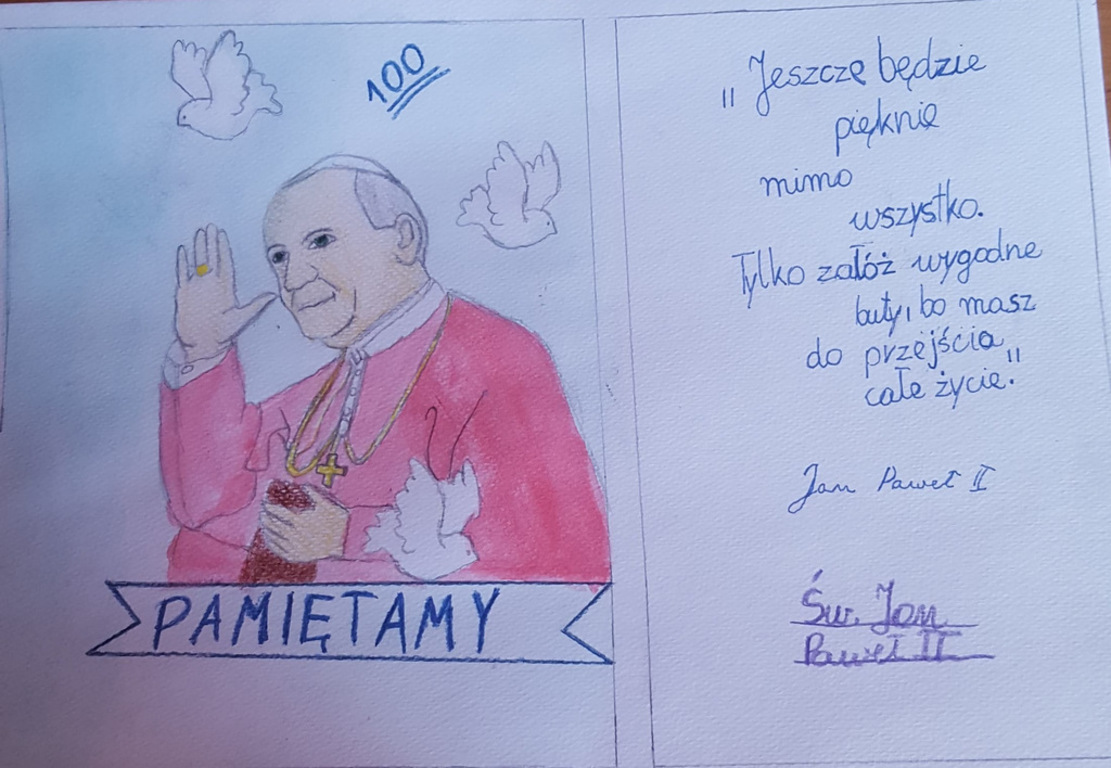 100
PAMIĘTAMY
„Jeszcze będzie
pięknie
mimo
wszystko.
Tylko załóż wygodne
buty, bo masz
do przejścia
całe życie."
Jan Paweł II
Św. Jan
Paweł II